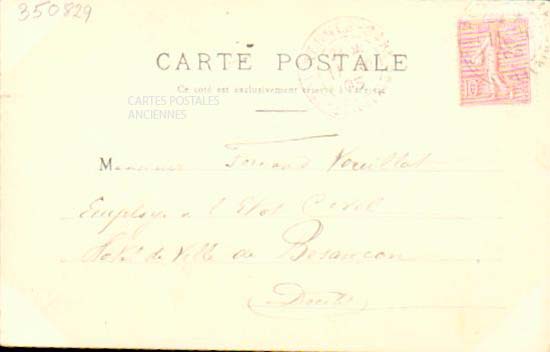 350829
CARTE POSTALE
Ce côté est exclusivement réservé à l'adresse
CARTES POSTALES
ANCIENNES
Monsieur Fernand Vouillot
Employé à l'Etat Civil
Hotel de Ville de Besançon
(Doubs)
10